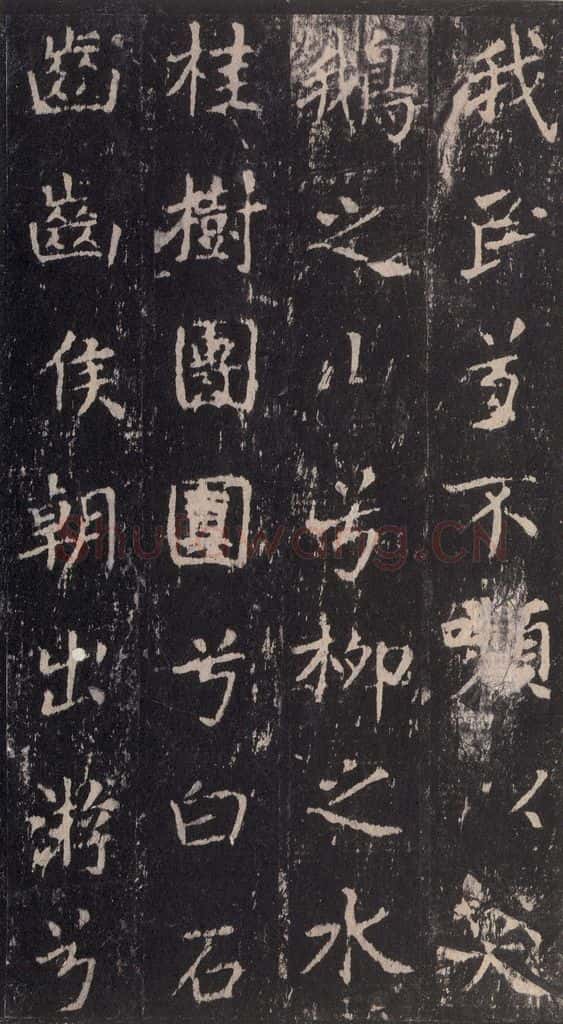 我民兮不嚬以笑
鵝之山兮柳之水
桂樹團團兮白石
齒齒侯朝出游兮
Shufawang.CN